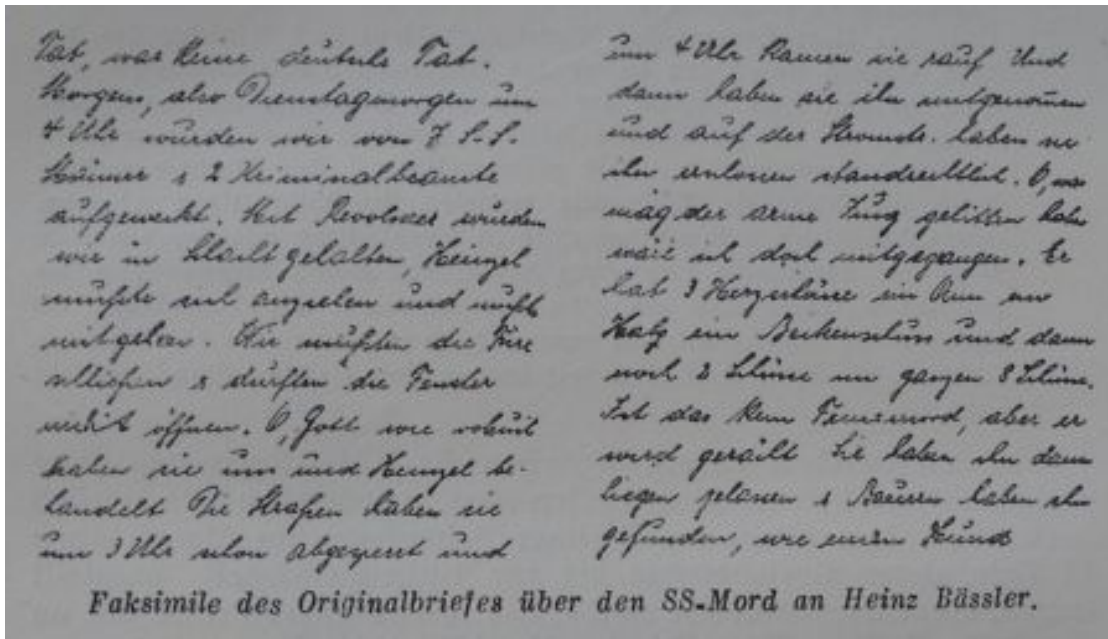 Tat, war keine deutsche Tat.
Morgens, also Dienstagmorgen um
4 Uhr wurden wir von 7 S.S.
Männer & 2 Kriminalbeamte
aufgeweckt. Mit Revolver wurden
wir in Schacht gehalten, Heinzel
mußte sich anziehen und mußte
mitgehen. Wir mußten die Türe
schließen & durften die Fenster
nicht öffnen. O, Gott wie
haben sie uns und Heinzel be-
handelt Die Straßen haben sie
um 3 Uhr schon abgesperrt und
um 4 Uhr kamen sie rauf Und
dann haben sie ihn mitgenommen
und auf der haben sie
ihn erschossen standrechtlich. O, was
mag der arme Jung gelitten haben
wäre ich doch mitgegangen. Er
hat 3 Herzschüsse ein
ein und dann
noch 2 Schüsse im ganzen 8 Schüsse.
Ist das kein Fememord, aber er
wird gerächt Sie haben ihn dann
liegen gelassen & Bauern haben ihn
gefunden, wie einen Hund
Faksimile des Originalbriefes über den SS-Mord an Heinz Bässler.